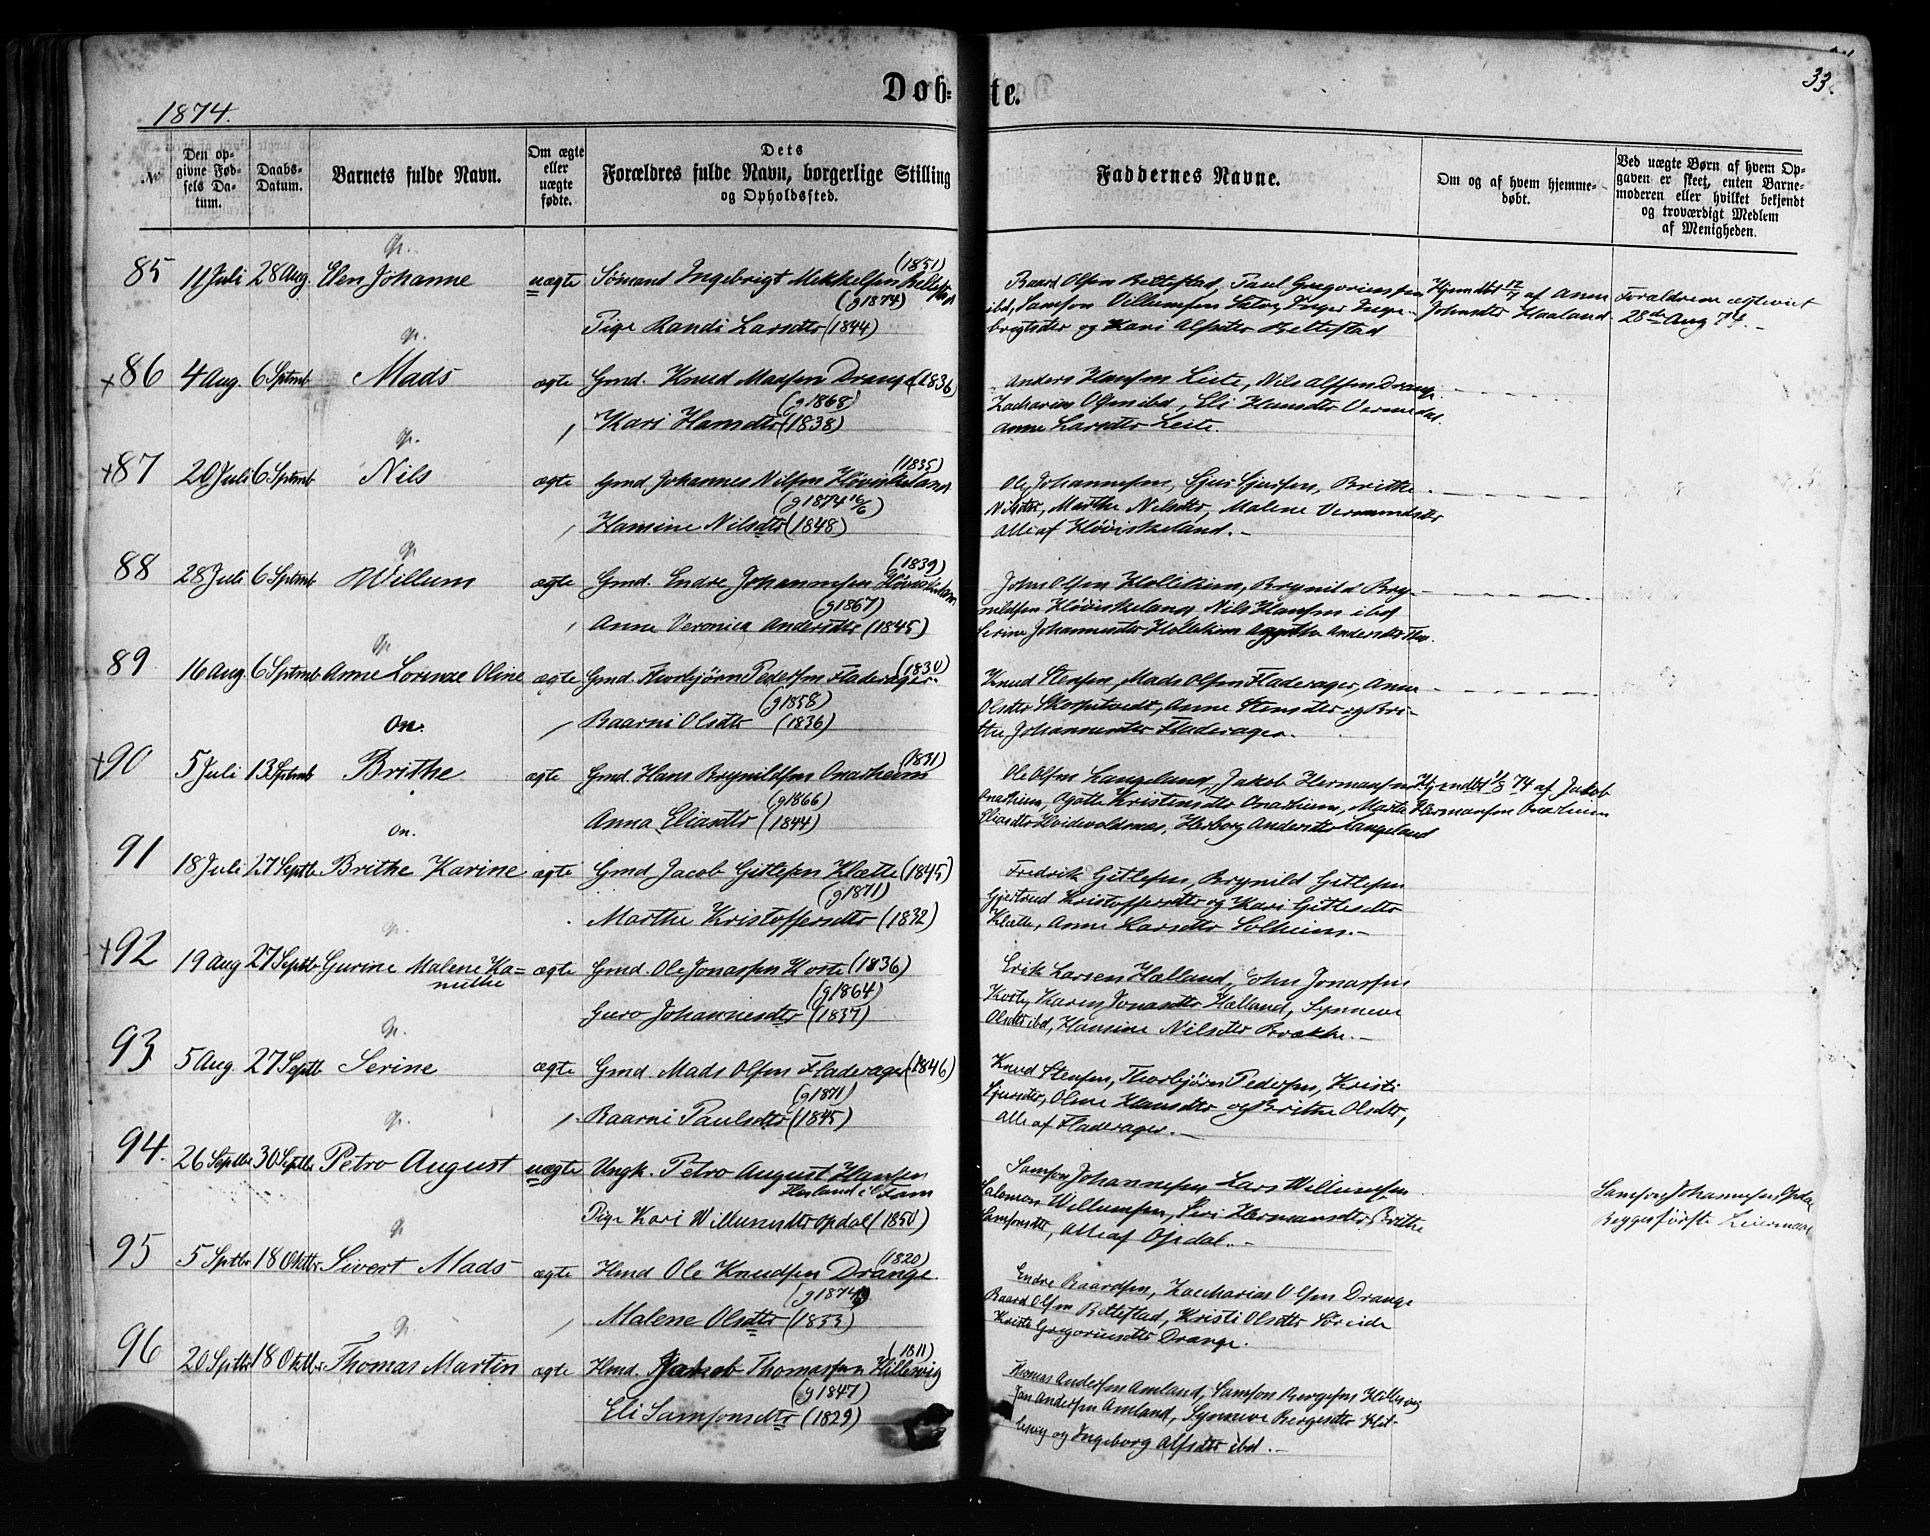 1874.
Dob=
te.
33.
No
Den op-
givne Fød-
sels Da-
tum.
Daabs-
Datum.
Barnets fulde Navn.
Om ægte
eller
uægte
fødte.
Dets
Forældres fulde Navn, borgerlige Stilling
og Opholdssted.
Faddernes Navne.
Om og af hvem hjemme-
døbt.
Ved uægte Børn af hvem Op-
gaven er skeet, enten Barne-
moderen eller hvilket bekjendt
og troværdigt Medlem
af Menigheden.
85 11 Juli 28 Aug. Elen Johanne uægte Sømand Ingebrigt Mikkelsen (1851)
(g 1874)
Pige Randi Larsdtr (1844)
Baard Olsen Beltestad, Paul Gregoriussen
ibd, Samson Villumsen
brigtsdtr og Kari Alfsdtr Beltestad
Hjemdbt 12/7 af Anna
Johnsdtr Haaland
Forældrene ægteviet
28de Aug 74.-
+86 4 Aug. 6 Septmb Mads ægte Gmd. Knud Madsen Drange (1836)
(g 1868)
Kari Hansdtr (1838)
Anders Hansen Leite, Nils Alfsen Drange
Zacharias Olsen ibd, Eli Hansdtr
Anne Larsdtr Leite.
+87 20 Juli 6 Septmb Nils ægte Gmd. Johannes Nilsen Høviskeland (1835)
(g 1874 16/6)
Hansine Nilsdtr (1848)
Ole Johannesen, Sjur Sjursen, Brithe
Nilsdtr, Marthe Nilsdtr, Malene Vermundsdtr
Alle af Høviskeland.-
88 28 Juli 6 Septmb Willum ægte Gmd. Endre Johannesen Høviskeland (1839)
(g 1867)
Anne Veronica Andersdtr (1845)
John Olsen Hollekim, Brynild Bry-
nildsen Høviskeland, Nils Hansen ibd
Serine Johannesdtr Holekim Agathe Andersdtr
89 16 Aug. 6 Septmb Anne Lorenze Oline ægte Gmd. Thorbjørn Pedersen Fladerager (1830)
(g 1858)
Baarni Olsdtr (1836)
Knud Stensen, Mads Olsen Fladerager, Anna
Olsdtr, Anne Stensdtr og Bri-
the Johannesdtr Fladerager.
On.
+90 5 Juli 13 Septmb Brithe ægte Gmd. Hans Brynildsen Onarheim (1831)
(g 1866)
Anna Eliasdtr (1844)
Ole Olsen Langeland, Jakob Hermansen
Onarheim, Agatte Kristensdtr Onarheim, Marta
Eliasdtr, Herborg Andersdtr Langeland
Hjemdbt 74 af Jakob
Hermansen Onarheim
On.
91 18 Juli 27 Septb. Brithe Karine ægte Gmd Jacob Gitlesen Klætte (1845)
(g 1871)
Marthe Kristoffersdtr (1832)
Fredrik Gitlesen, Brynild Gitlesen
Gjertrud Kristoffersdtr og Kari Gitlesdtr
Klætte, Anne Larsdtr Solheim.-
+92 19 Aug 27 Septbr Gurine Malene Ka=
nutthe ægte Gmd. Ole Jonassen Koste (1836)
(g 1864)
Guro Johannesdtr (1837)
Erik Larsen Hælland, John Jonassen
Koste, Karen Jonasdtr Hælland, Synneve
Olsdtr ibd, Hansine Nilsdtr Brække.-
93 5 Aug. 27 Septb Serine ægte Gmd. Mads Olsen Fladerager (1846)
(g 1871)
Baarni Paulsdtr (1845)
Knud Stensen, Thorbjørn Pedersen, Kristi
Sjursdtr, Oline Hansdtr og Brithe Olsdtr,
Alle af Fladerager.-
94. 26 Septbr 30 Septbr Petro August uægte Ungk. Petro August Hansen
Pige Kari Willumsdtr Opdal (1850)
Samson Johannesen, Lars Willumsen
Salomon Willumsen, Siri Hermansdtr, Brithe
Samsonsdtr, Alle af Opdal.-
Samson Johannesen Opdal
Begges første Leiermaal
95 5 Septbr 18 Oktbr Sivert Mads ægte Hmd Ole Knudsen Drange (1820)
(g 1874)
Malene Olsdtr (1833)
Endre Baardsen, Zacharias Olsen Drange
Baard Olsen Beltestad, Kristi Olsdtr Søreide
Kristi Gregoriusdtr Drange.
96 20 Septbr 18 Oktbr Thomas Martin ægte Hmd. Jakob Thomassen Hillesvig (1811)
(g 1847)
Eli Samsonsdtr (1829)
Thomas Andersen Amland, Samson Børgesen Hillesvig
Jan Andersen Amland, Synneve Børgesdtr Hil-
lesvig og Ingeborg Alfsdtr ibd.-